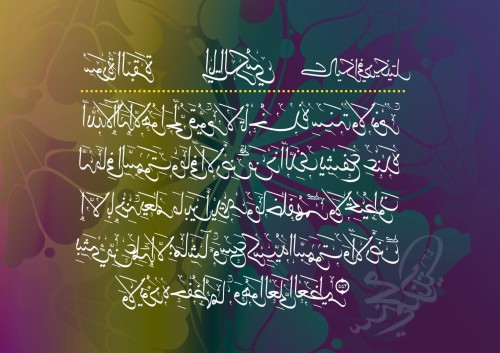 سورة البقرة آية الكرسي
الله لا إله إلا هو الحي القيوم لا تأخذه سنة ولا نوم
له ما في السموت وما في الأرض من ذا الذي يشفع عنده
إلا بإذنه يعلم ما بين أيديهم وما خلفهم ولا يحيطون
بشيء من علمه إلا بما شاء وسع كرسيه السموت والأرض
ولا يؤده حفظهما وهو العلي العظيم